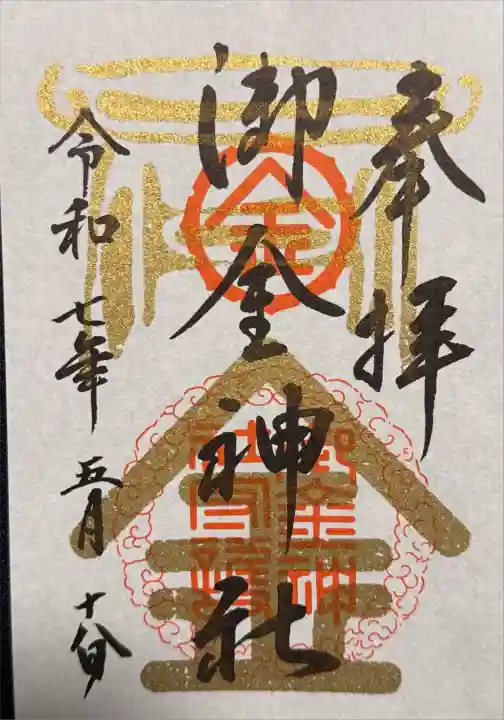 奉拝
御金神社
令和七年五月十八日
金
金